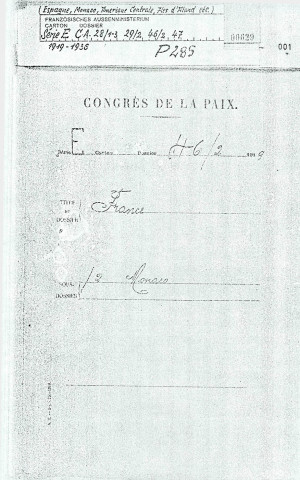 (Espagne, Monaco, Amérique Centrale, Iles d'Aland etc.)
FRANZÖSISCHES AUSSENMINISTERIUM
CARTON DOSSIER
Série E C.A. 28/1-3, 29/2, 46/2, 47
1919-1936
P 285
00629
001
CONGRÈS DE LA PAIX.
SÉRIE E Carton Dossier 46/2 191 9
TITRE DU DOSSIER France
SOUS-DOSSIER /2 Monaco